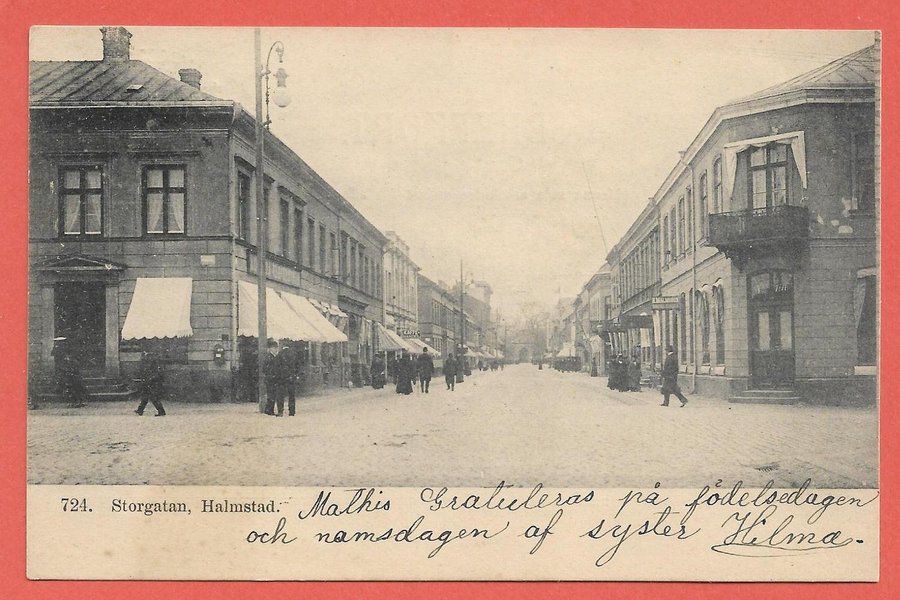 724. Storgatan, Halmstad. Mathis Gratuleras på födelsedagen
och namsdagen af syster Hilma.